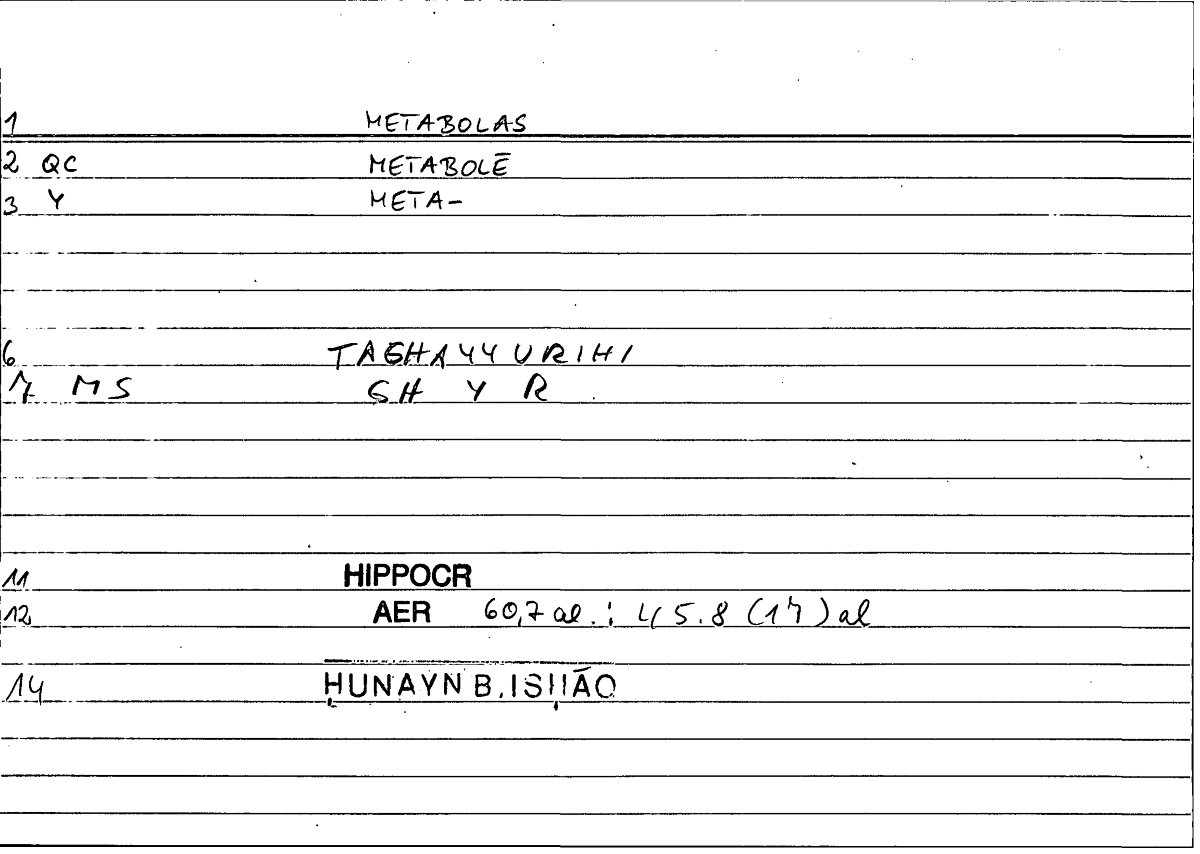 1 METABOLAS
2 QC METABOLĒ
3 Y META-
6 TAGHAYYURIHI
7 MS GH Y R
11 HIPPOCR
12 AER 60,7 al.; 45.8 (17) al
14 ḤUNAYN B. ISḤĀQ